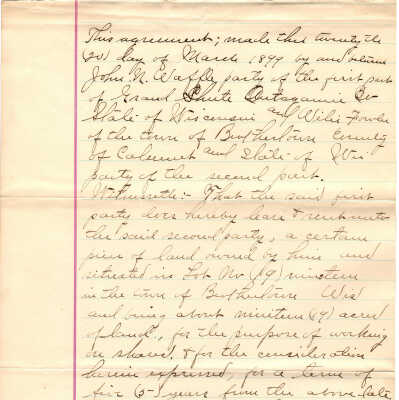 This agreement; made this twentyth
(20) day of March 1899 by and between
John N. Waffle party of the first part
of Grand Chute Outagamie Co
State of Wisconsin and Wilis Fowler
of the town of Brothertown County
of Calumet and State of Wis
party of the second part.
Witnesseth:- That the said first
party does hereby lease & rent unto
the said second party, a certain
piece of land owned by him and
situated in Lot No (19) nineteen
in the town of Brothertown Wis
and being about nineteen (19) acres
of land, for the purpose of working
on shares. & for the consideration
herein expressed, for a term of
five 5 years from the above date